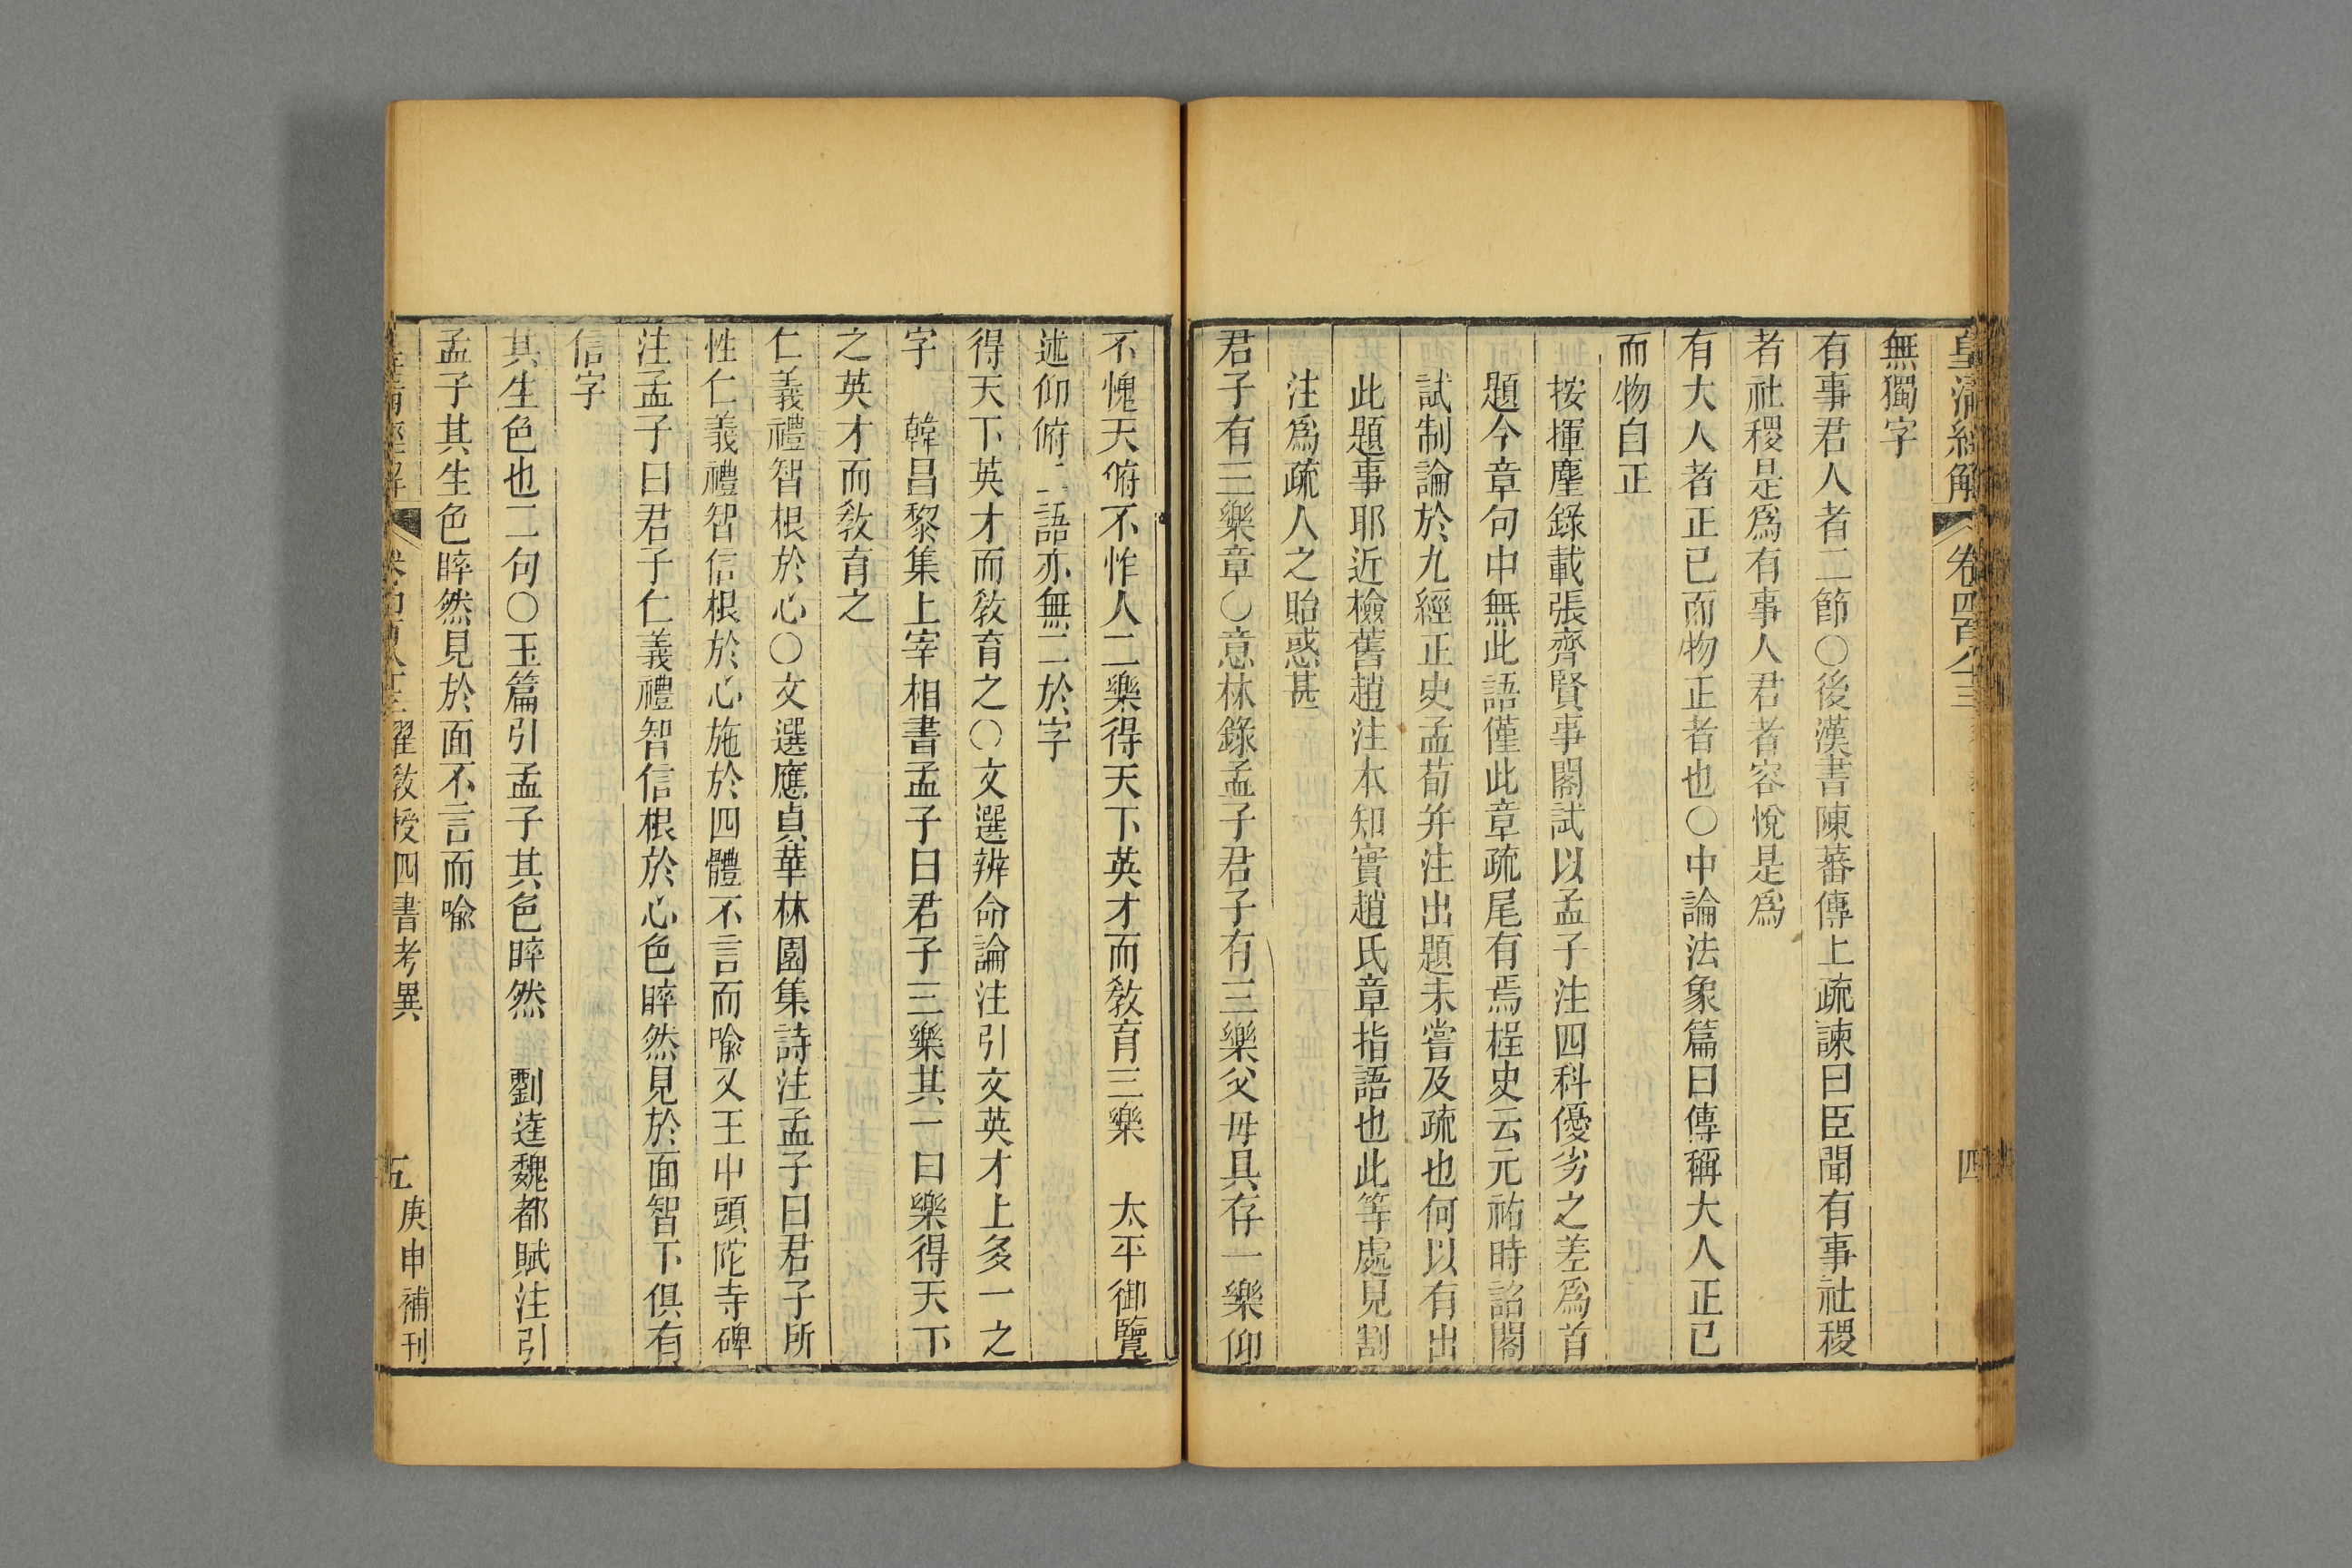 皇清經解 卷四百八十三 四
無獨字
有事君人者二節〇後漢書陳蕃傳上疏諫曰臣聞有事社稷
者社稷是爲有事人君者容悅是爲
有大人者正已而物正者也〇中論法象篇曰傳稱大人正已
而物自正
按揮麈錄載張齊賢事閣試以孟子注四科優劣之差爲首
題今章句中無此語僅此章疏尾有焉桯史云元祐時詔閣
試制論於九經正史孟荀并注出題未嘗及疏也何以有出
此題事耶近檢舊趙注本知實趙氏章指語也此等處見割
注爲疏人之貽惑甚
君子有三樂章〇意林錄孟子君子有三樂父母具存一樂仰
不愧天俯不怍人二樂得天下英才而敎育三樂 太平御覽
述仰俯二語亦無二於字
得天下英才而敎育之〇文選辨命論注引文英才上多一之
字 韓昌黎集上宰相書孟子曰君子三樂其一曰樂得天下
之英才而敎育之
仁義禮智根於心〇文選應貞華林園集詩注孟子曰君子所
性仁義禮智信根於心施於四體不言而喩又王屮頭陀寺碑
注孟子曰君子仁義禮智信根於心色睟然見於面智下俱有
信字
其生色也二句〇玉篇引孟子其色睟然 劉逵魏都賦注引
孟子其生色睟然見於面不言而喩
皇清經解 卷四百八十三 翟敎授四書考異 五 庚申補刊